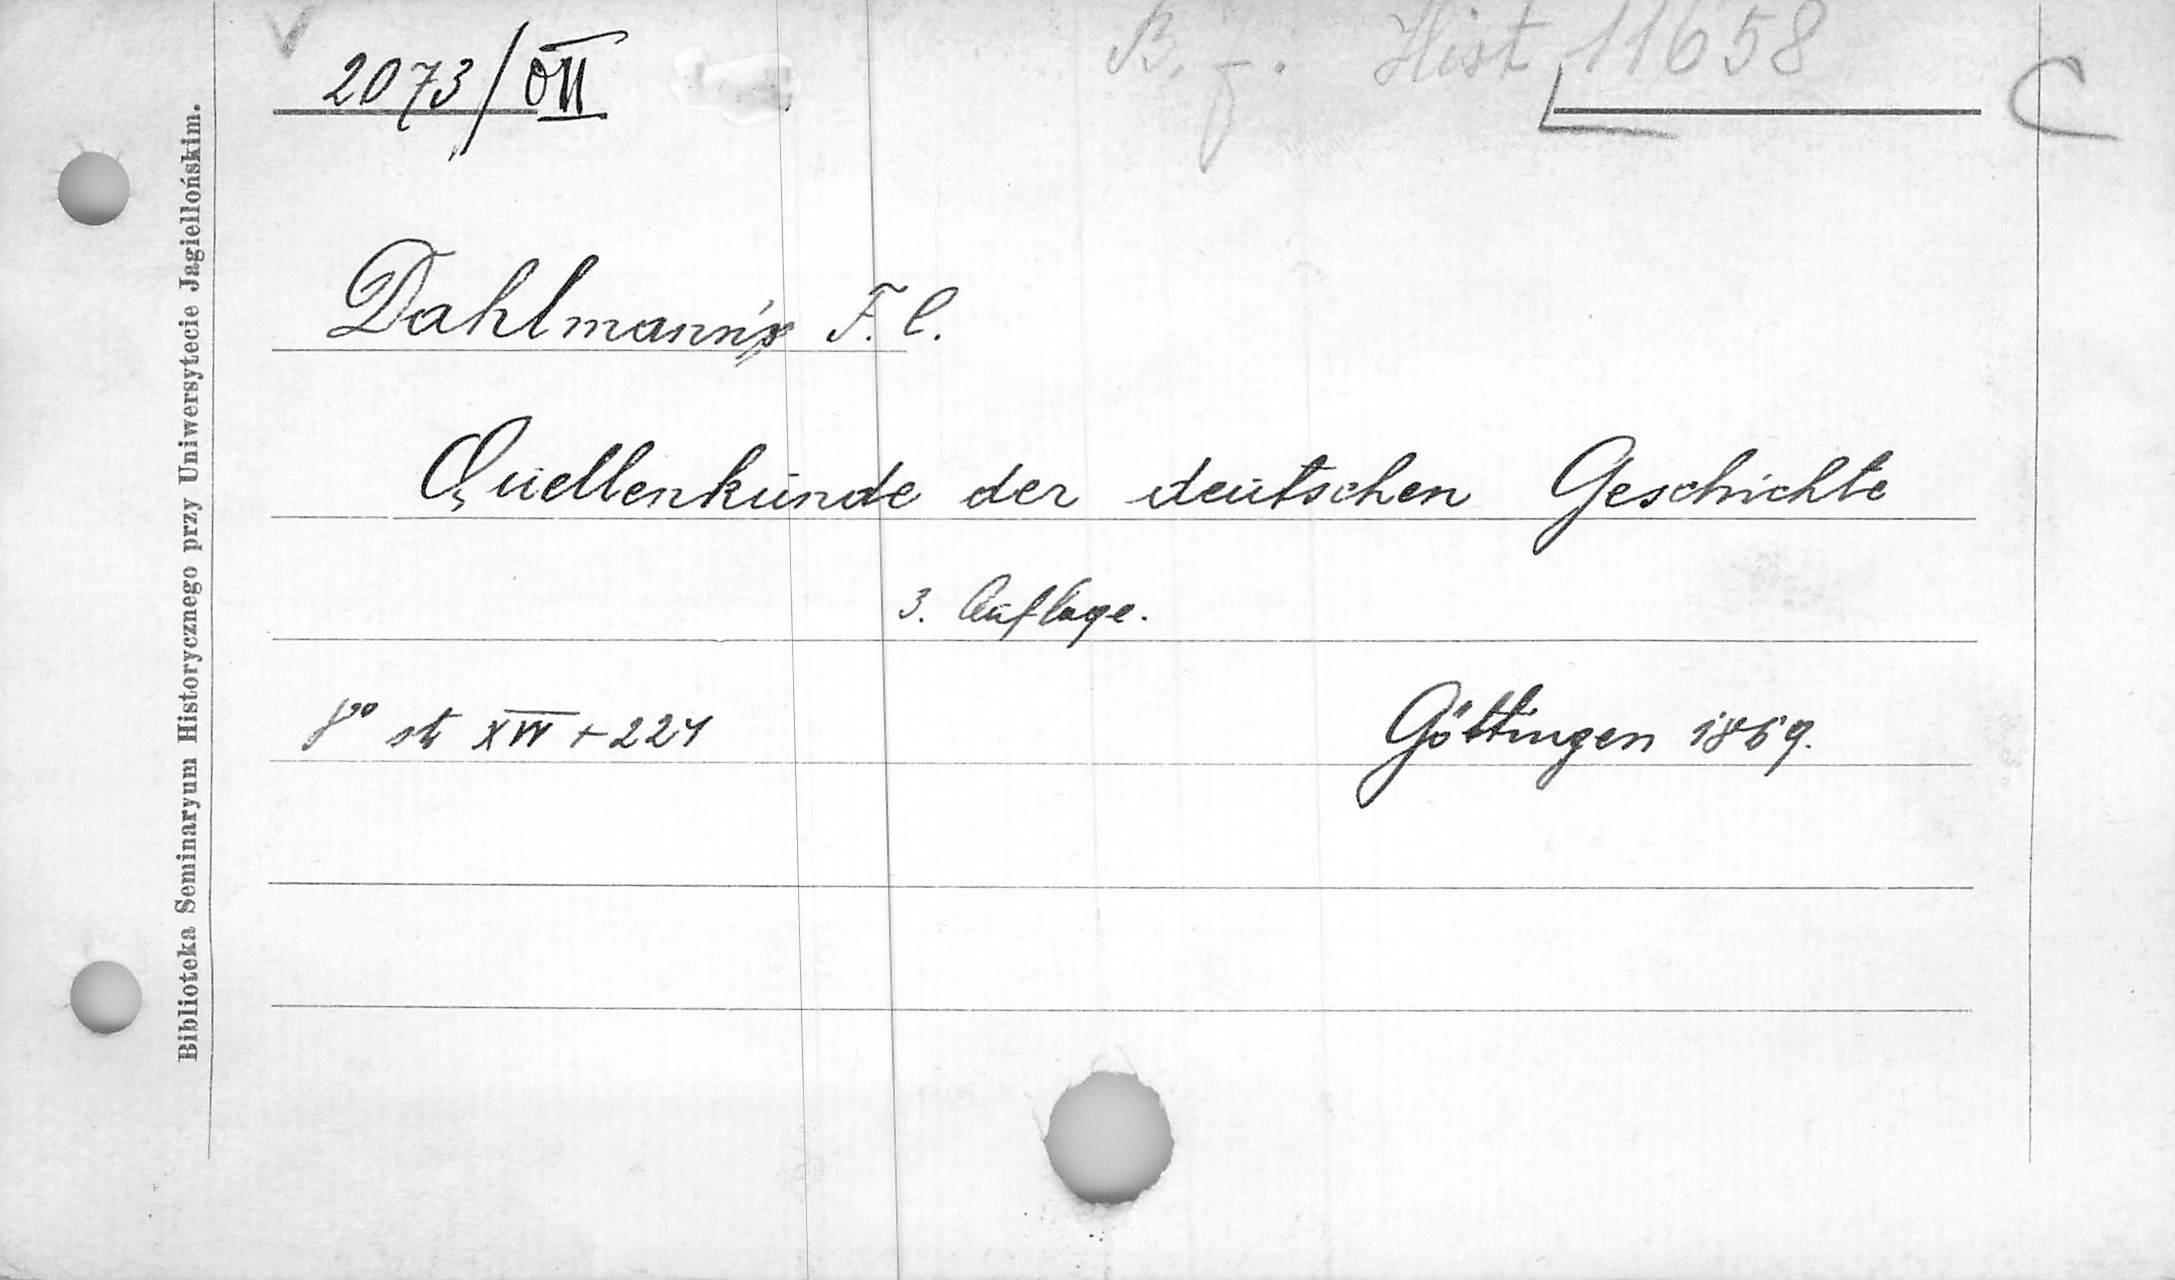 2073/VII
B. j. Hist 11658
C
Dahlmann's F. C.
Quellenkunde der deutschen Geschichte
3. Auflage.
8vo st XVI + 224
Göttingen 1869.
Biblioteka Seminaryum Historycznego przy Uniwersytecie Jagiellońskim.